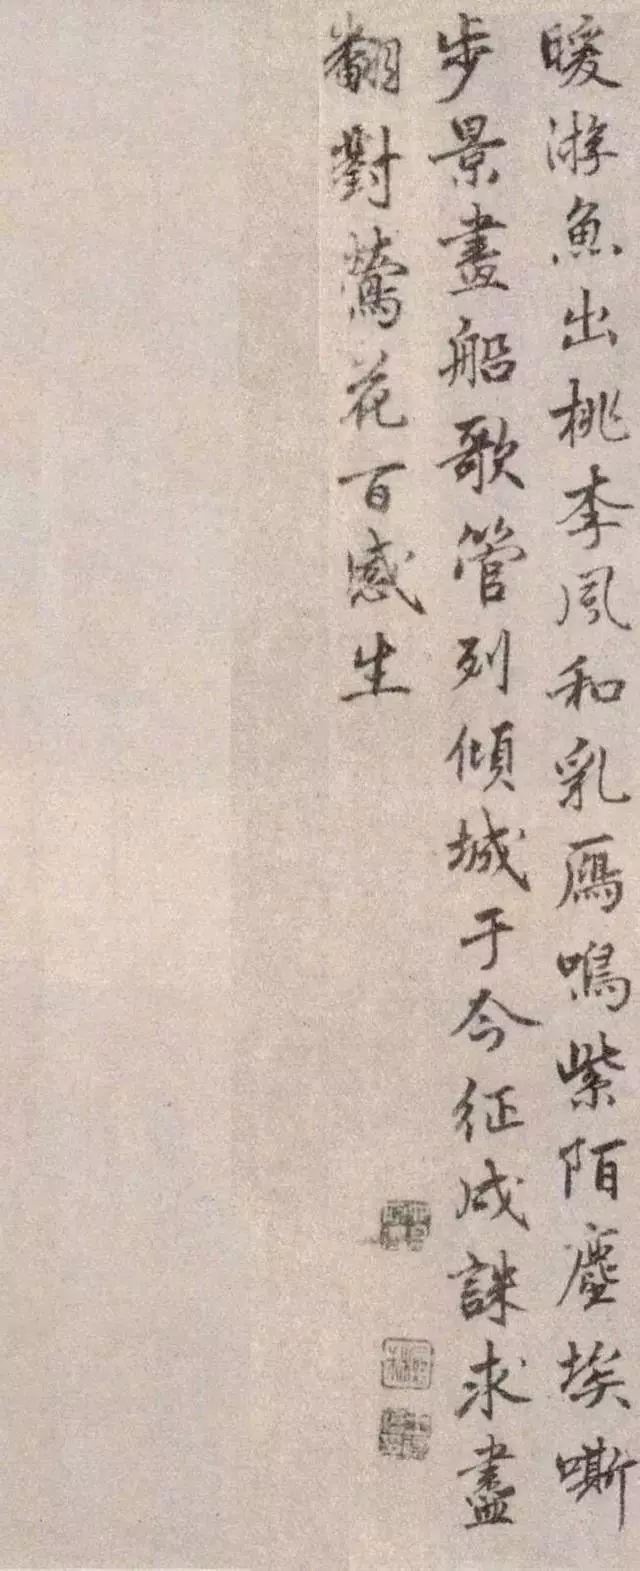 暖游魚出桃李風和乳鴈鳴紫陌塵埃嘶
步景畫船歌管列傾城于今征戍誅求盡
翻對鶯花百感生